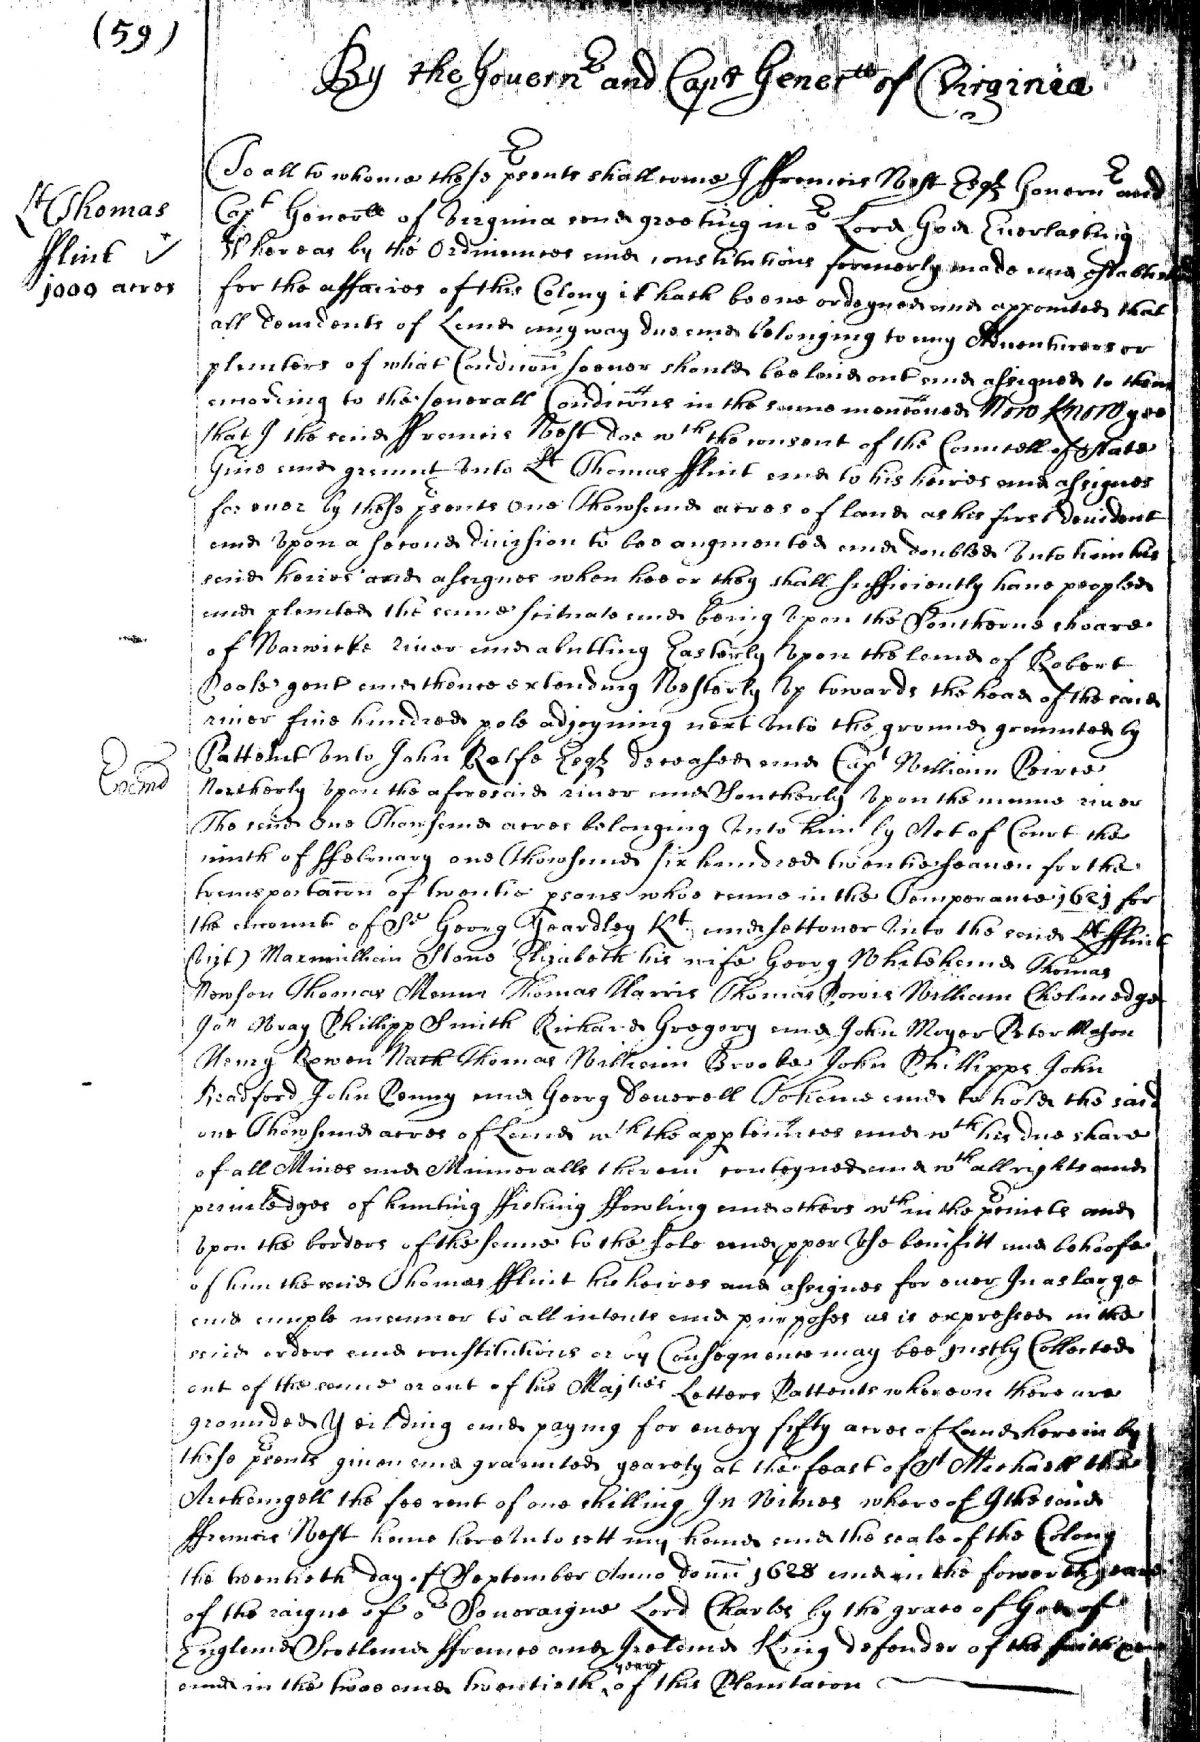 (59)
By the Govern^r and Cap^t Gener^ll of Virginia
L^t Thomas
fflint
1000 acres
To all to whome these p^rsents shall come I ffrancis West Esq^r Govern^r and
Cap^t Gener^ll of Virginia send greeting in o^r Lord God Everlasting
Whereas by the Ordinances and constitutions formerly made and established
for the affaires of this Colony it hath beene ordeyned and appointed that
all devidents of Land any way due and belonging to any Adventurers or
planters of what Condicon soever should bee laid out and assigned to them
according to the severall Condicons in the same menconed Now Know yee
that I the said ffrancis West doe w^th the consent of the Councell of State
Give and graunt unto L^t Thomas fflint and to his heires and assignes
for ever by these p^rsents one Thowsand acres of land as his first devident
and upon a second division to bee augmented and doubled unto him his
said heires and assignes when hee or they shall sufficiently have peopled
and planted the same scituate and being upon the Southerne shoare
of Warwicke river and abutting Easterly upon the land of Robert
Poole gent and thence extending Westerly up towards the head of the said
river five hundred pole adjoyning next unto the ground graunted by
Pattent unto John Rolfe Esq^r deceased and Cap^t William Peirce
Northerly upon the aforesaid river and Southerly upon the maine river
The said One Thowsand acres belonging unto him by Act of Court the
ninth of ffebruary one Thowsand six hundred twentie seaven for the
transportacon of twentie psons whoe came in the Temperance 1621 for
the accompt of S^r Georg Yeardley K^t and sett over unto the said L^t fflint
(vizt) Maxmillian Stone Elizabeth his wife Georg Whitehand Thomas
Newson Thomas Mann Thomas Harris Thomas Powis William Cholmedge
Jo^n Wray Phillipp Smith Richard Gregory and John Moyer Peter Mason
Henry Rowen Nath Thomas William Brooke John Phillipps John
Bradford John Penny and Georg Deverell To have and to hold the said
one Thowsand acres of Land w^th the appten^nces and w^th his due share
of all Mines and Mineralls therein conteyned and w^th all rights and
priviledges of hunting ffishing ffowling and others w^thin the p^rcincts and
upon the borders of the same to the sole and pper use benifitt and behoofe
of him the said Thomas fflint his heires and assignes for ever In as large
and ample manner to all intents and purposes as is expressed in the
said orders and constitutions or by Consequence may bee justly Collected
out of the same or out of his Maj^ties Letters Pattents whereon there are
grounded Yeilding and paying for every fifty acres of Land herein by
these p^rsents given and graunted yearely at the feast of S^t Michaell the
Archangell the fee rent of one shilling In Witnes whereof I the said
ffrancis West have hereunto sett my hand and the seale of the Colony
the twentieth day of September Anno Domi 1628 and in the fowerth yeare
of the raigne of o^r Soveraigne Lord Charles by the grace of God of
England Scotland ffrance and Ireland King defender of the faith
and in the twoe and twentieth yeare of this Plantacon